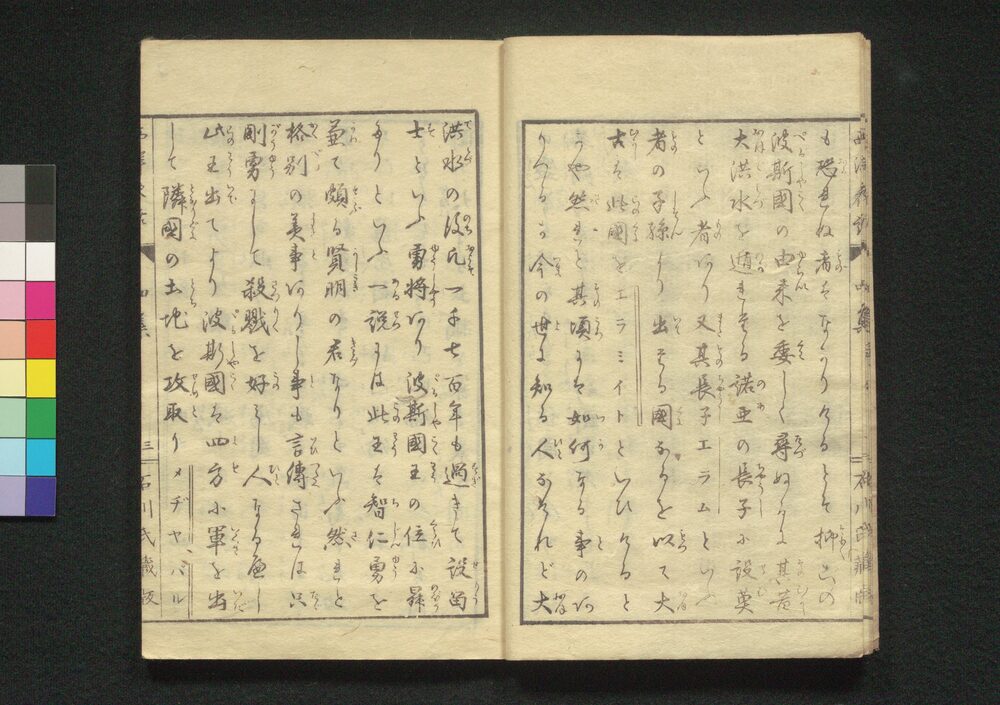 も恐れぬ者はなかりけるとぞ抑この
波斯國の由来を委しく尋ぬるに其昔
大洪水を遁れたる諾亜の長子に設莫
といふ者あり又其長子エラムといふ
者の子孫より出たる國なるを以て大
古は此國をエラミイトといひけると
かや然れど其頃は如何なる事のあ
りつるか今の世に知る人なけれど大
洪水の後凡一千七百年も過きて設
士といふ勇将あり波斯國王の位に昇
りといふ一説には此王は智仁勇を
兼て頗る賢明の君なりといふ然れど
格別の美事ありし事も言傳されば只
剛勇にして殺戮を好みし人なるべし
此王出てより波斯國は四方に軍を出
して隣國の土地を攻取りメヂヤバル
三 石川氏蔵板